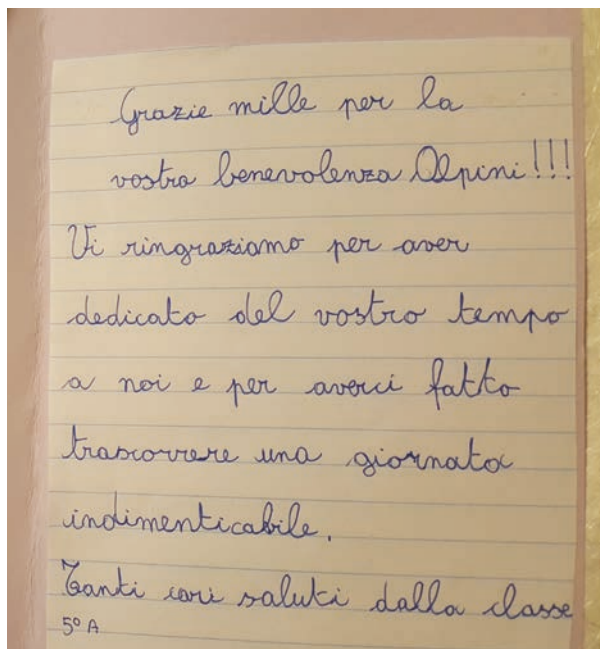 Grazie mille per la
vostra benevolenza Alpini!!!
Vi ringraziamo per aver
dedicato del vostro tempo
a noi e per averci fatto
trascorrere una giornata
indimenticabile.
Tanti cari saluti dalla classe
5º A